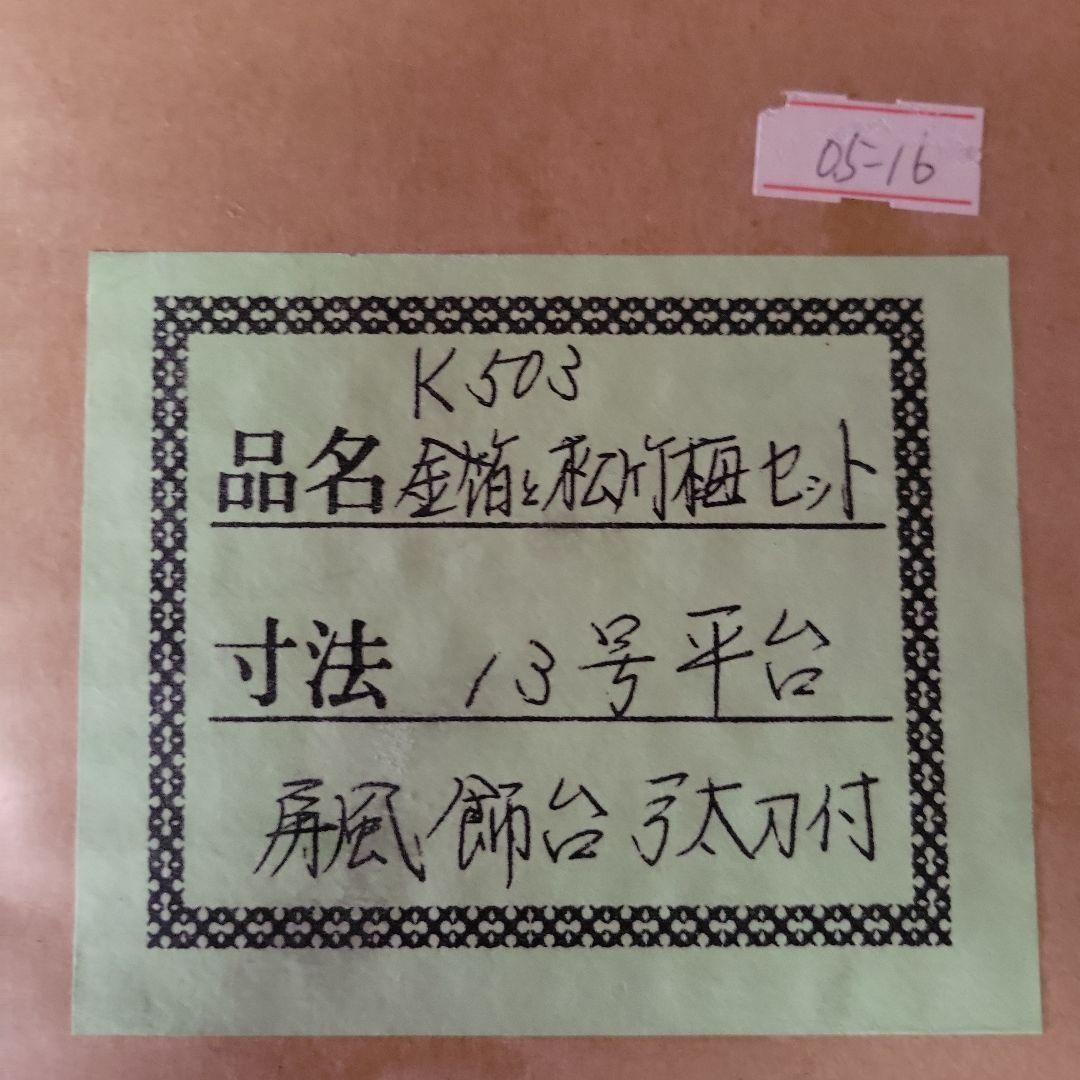 05-16
K503
品名 金箔と松竹梅セット
寸法 13号平台
屏風 飾台 弓太刀付